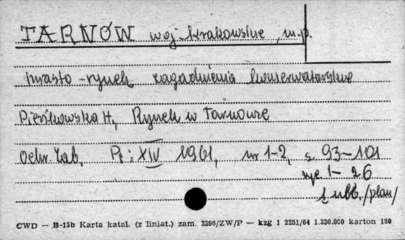 TARNÓW woj. krakowskie, m.p.
miasto - rynek zagadnienia konserwatorskie
Pieńkowska H, Rynek w Tarnowie
Ochr. Zab, R: XIV 1961, nr 1-2, s. 93-101
ryc 1-26
1 ubl. /plan/
CWD — B-15b Karta katal. (z liniat.) zam. 2396/ZW/P — kzg 1 2251/64 1.230.000 karton 180